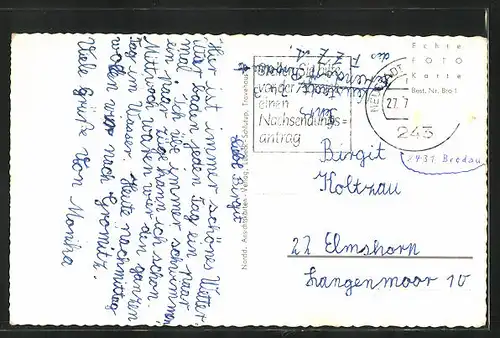 Liebe Birgit
Hier ist immer schönes Wetter.
Wir baden jeden Tag ein paar
mal. Ich übe immer schwimmen
ein paar Züge kann ich schon.
Mittwoch waren wir den ganzen
Tag im Wasser. Heute nachmittag
wollen wir nach Grömitz.
Viele Grüße von Monika
Echte
FOTO
Karte
Best. Nr. Bro 1
vor der
einen
Nachsendungs=
antrag
NEUSTADT
27.7
243
2431 Brodau
Birgit
Koltzau
22 Elmshorn
Langenmoor 10
Nordd. Ansichtskarten-Verlag